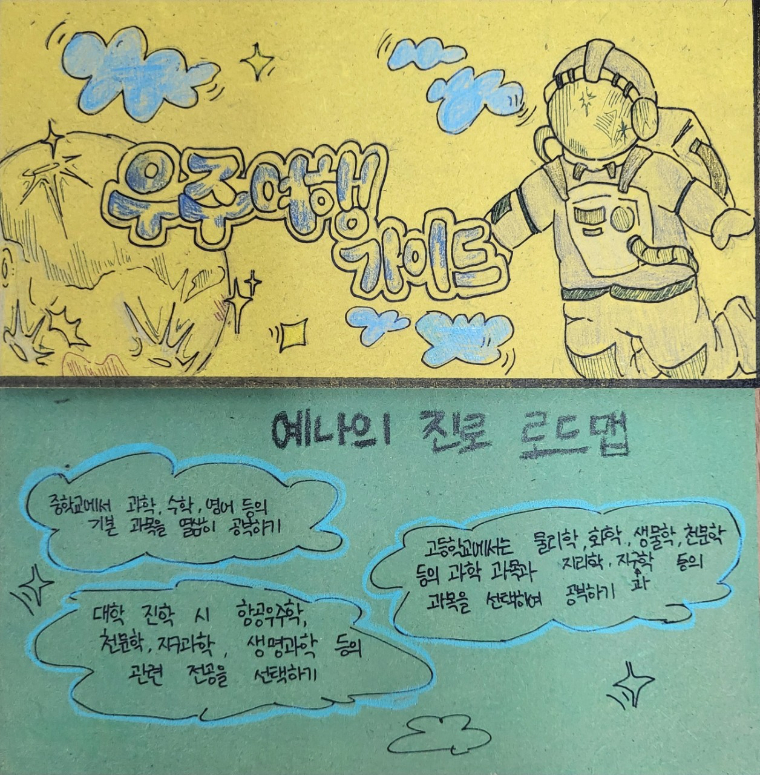 우주여행
가이드
예나의 진로 로드맵
중학교에서 과학, 수학, 영어 등의
기본 과목을 열심히 공부하기
고등학교에서는 물리학, 화학, 생물학, 천문학
등의 과학 과목과 지리학, 지구과학 등의
과목을 선택하여 공부하기
대학 진학 시 항공우주학,
천문학, 지구과학, 생명과학 등의
관련 전공을 선택하기